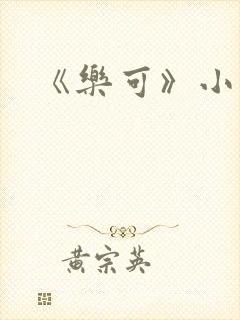 《樂可》小
黄宗英